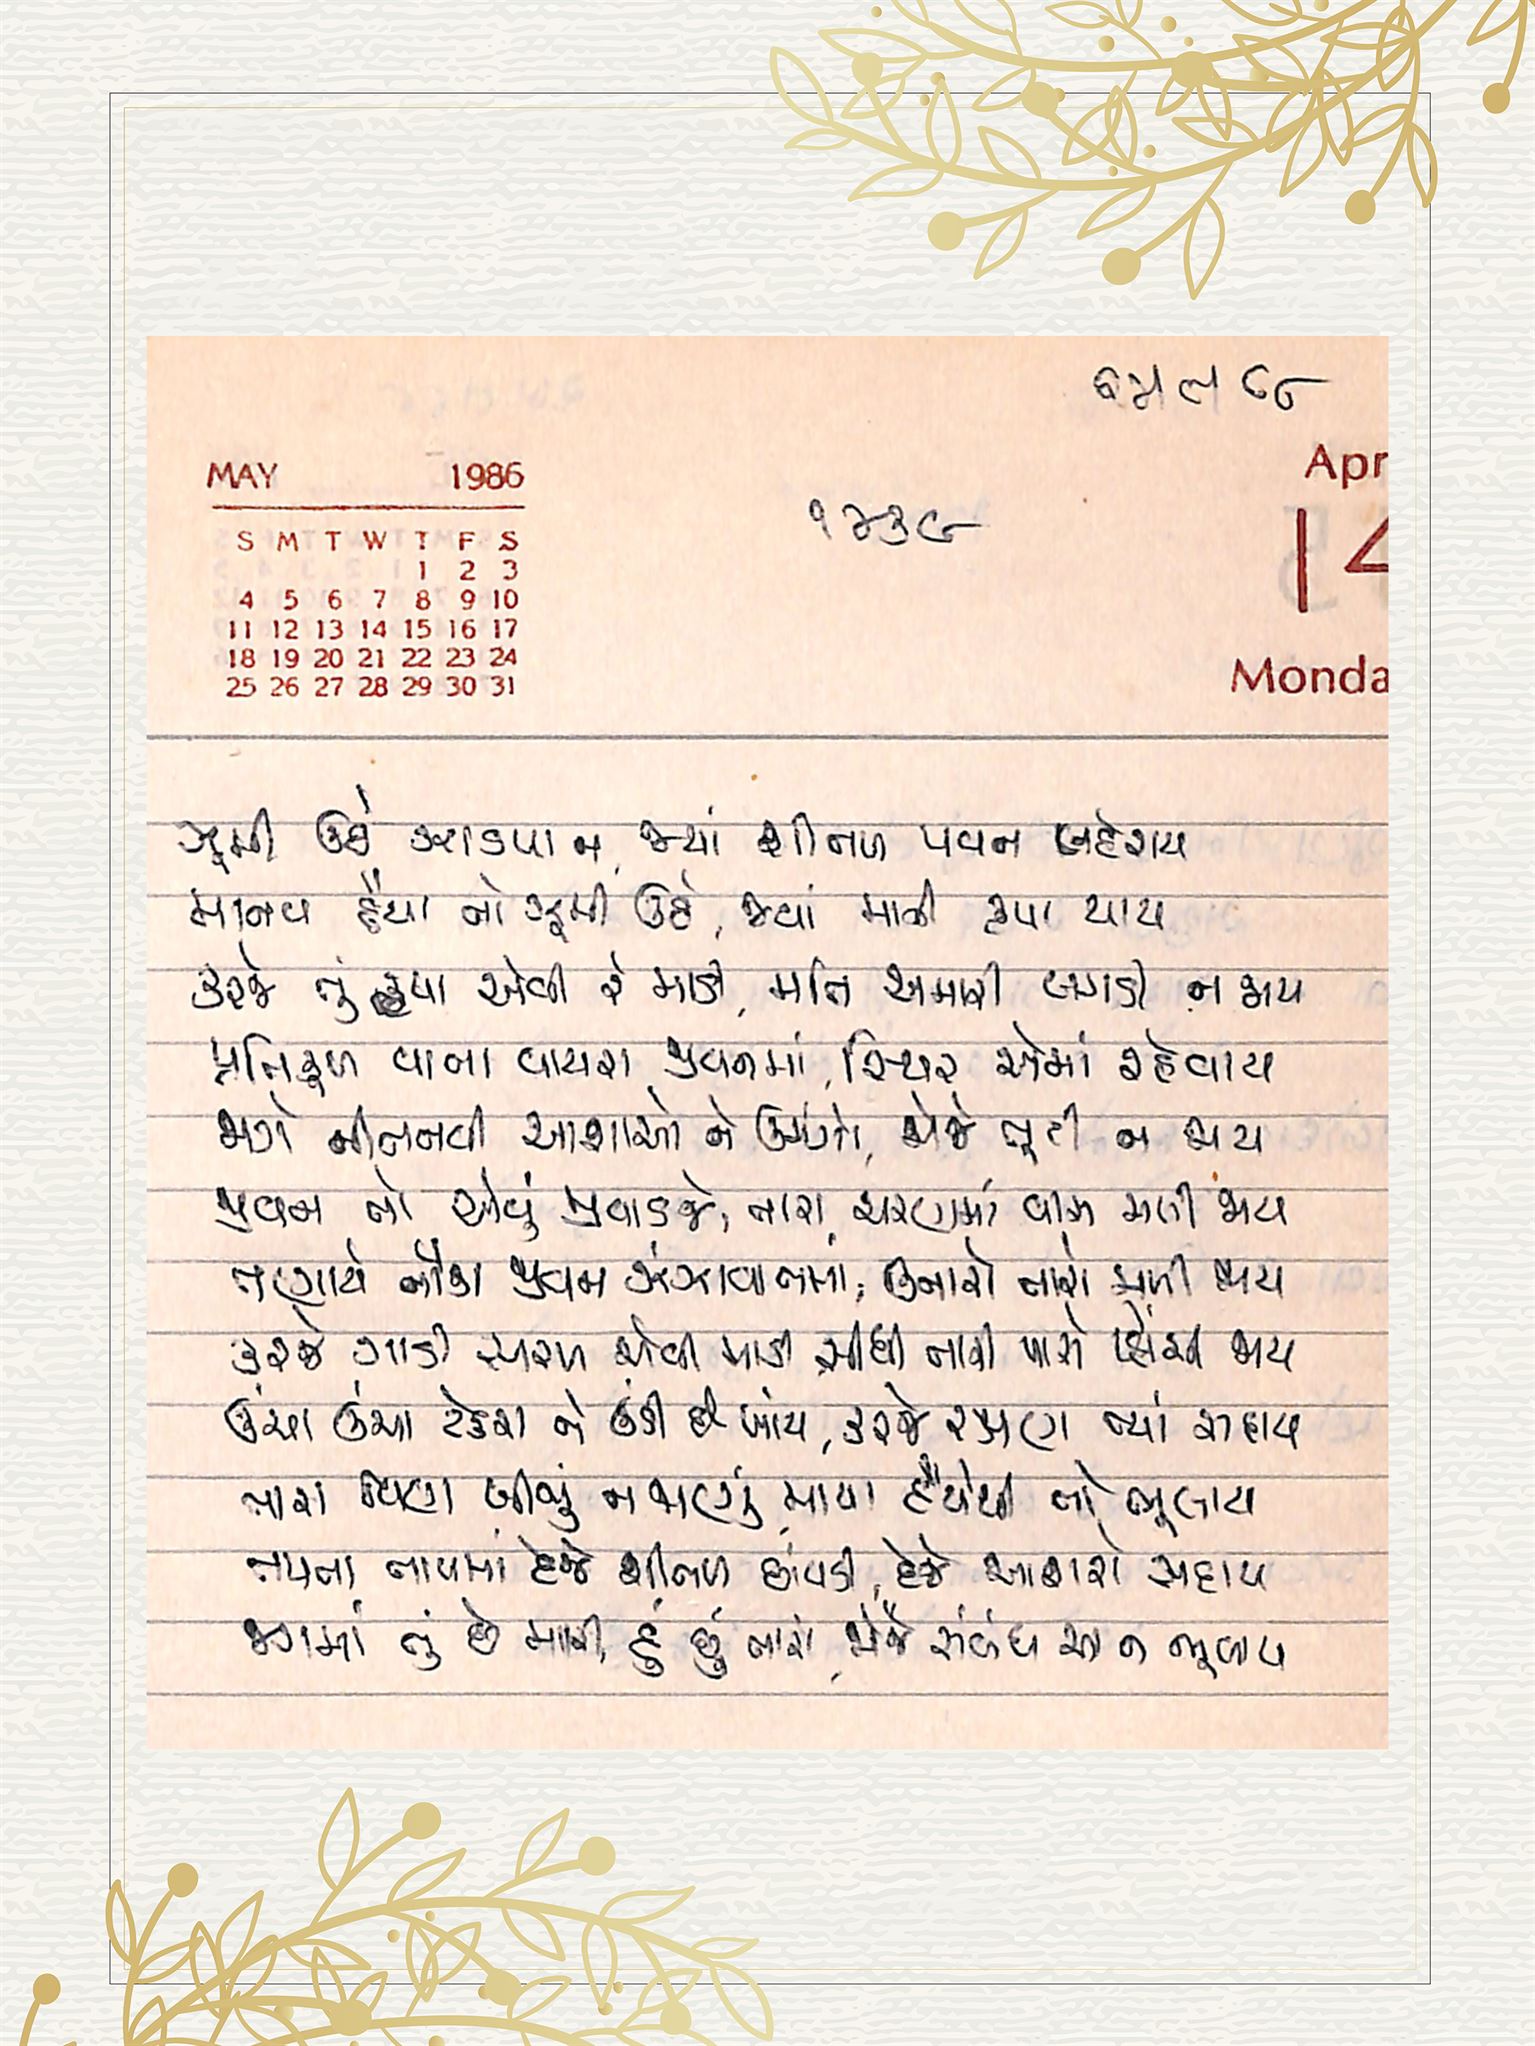 MAY 1986
S M T W T F S
1 2 3
4 5 6 7 8 9 10
11 12 13 14 15 16 17
18 19 20 21 22 23 24
25 26 27 28 29 30 31
૧૩૩૯
Apr
14
Monda
ઝૂમી ઉઠે ઝાડપાન, જ્યાં શીતળ પવન લહેરાય
માનવ હૈયા તો ઝૂમી ઉઠે, જ્યાં માની કૃપા થાય
કરજે તું કૃપા એવી રે માડી, મતિ અમારી બગડી ન જાય
પ્રતિકૂળ વાતા વાયરા જીવનમાં, સ્થિર એમાં રહેવાય
જાગે નીતનવી આશાઓ ને ઉમંગો, જોજે તૂટી ન જાય
જીવન તો એવું જીવાડજે, તારા ચરણમાં વીતી જાય
તણાયે નૌકા જીવન ઝંઝાવાતમાં, ઉતારો તારો મળી જાય
કરજે ગાડી સરળ એવી માડી સીધી તારી પાસે જાય
ઉંચા ઉંચા ટેકરા ને ઉંડી છે ખીણ, કરજે રક્ષણ ત્યાં સદાય
તારા વિણ બીજું ન જાણું, માયા હૈયેથી તો ભૂલાય
તપતા તાપમાં દેજે શીતળ છાંયડી, દેજે આશરો સદાય
જગમાં તું છે મારી, હું છું તારો, જોજે સંબંધ આ ન ભૂલાય